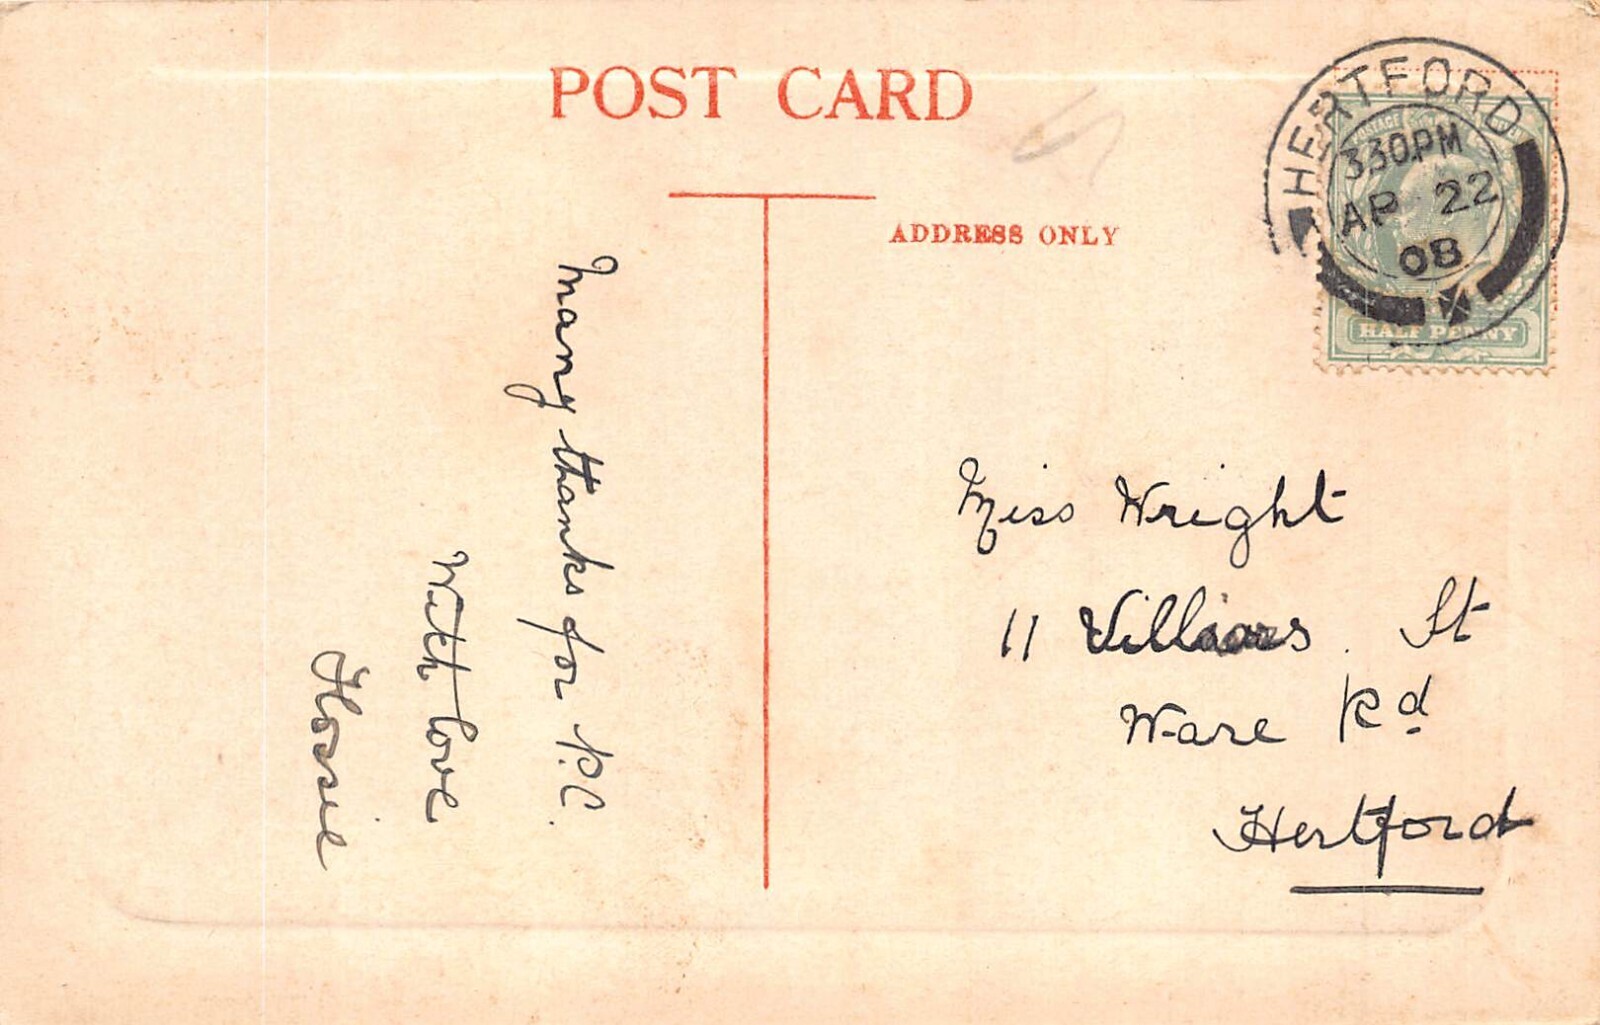 POST CARD
ADDRESS ONLY
HERTFORD
3.30PM
AP 22
08
POSTAGE
HALF PENNY
Many thanks for P.C.
With love
Flossie
Miss Wright
11 St
Ware Rd
Hertford